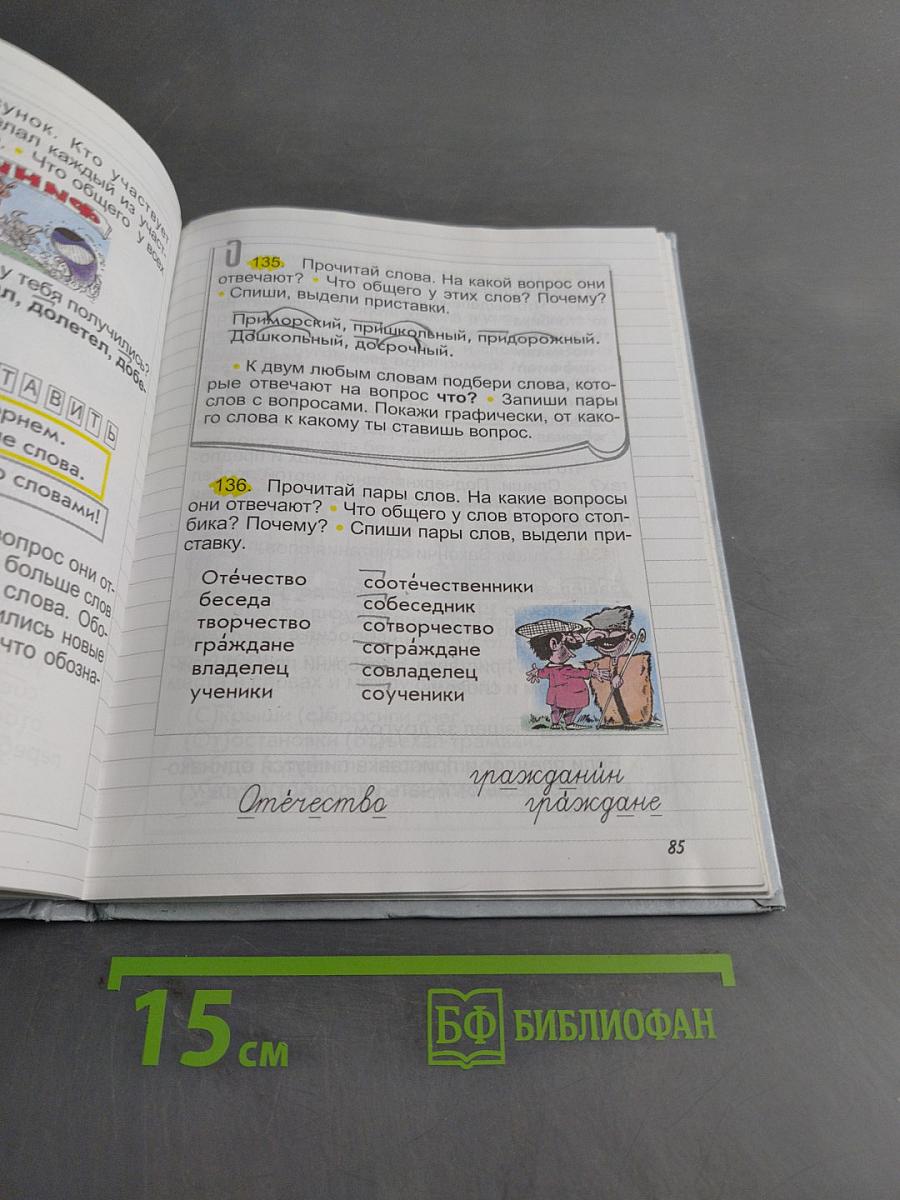 сунок. Кто участвует
каждый из участ-
Что общего у всех
у тебя получились?
долетел, добе-
ТАВИТЬ
рнем.
е слова.
словами!
вопрос они от-
больше слов
слова. Обо-
ились новые
что обозна-
135. Прочитай слова. На какой вопрос они
отвечают? • Что общего у этих слов? Почему?
• Спиши, выдели приставки.
Приморский, пришкольный, придорожный.
Дошкольный, досрочный.
• К двум любым словам подбери слова, кото-
рые отвечают на вопрос что? • Запиши пары
слов с вопросами. Покажи графически, от како-
го слова к какому ты ставишь вопрос.
136. Прочитай пары слов. На какие вопросы
они отвечают? • Что общего у слов второго стол-
бика? Почему? • Спиши пары слов, выдели при-
ставку.
Оте́чество сооте́чественники
беседа собеседник
творчество сотворчество
гра́ждане согра́ждане
владелец совладелец
ученики соученики
граждани́н
Оте́чество гра́ждане
85
15 см БФ БИБЛИОФАН